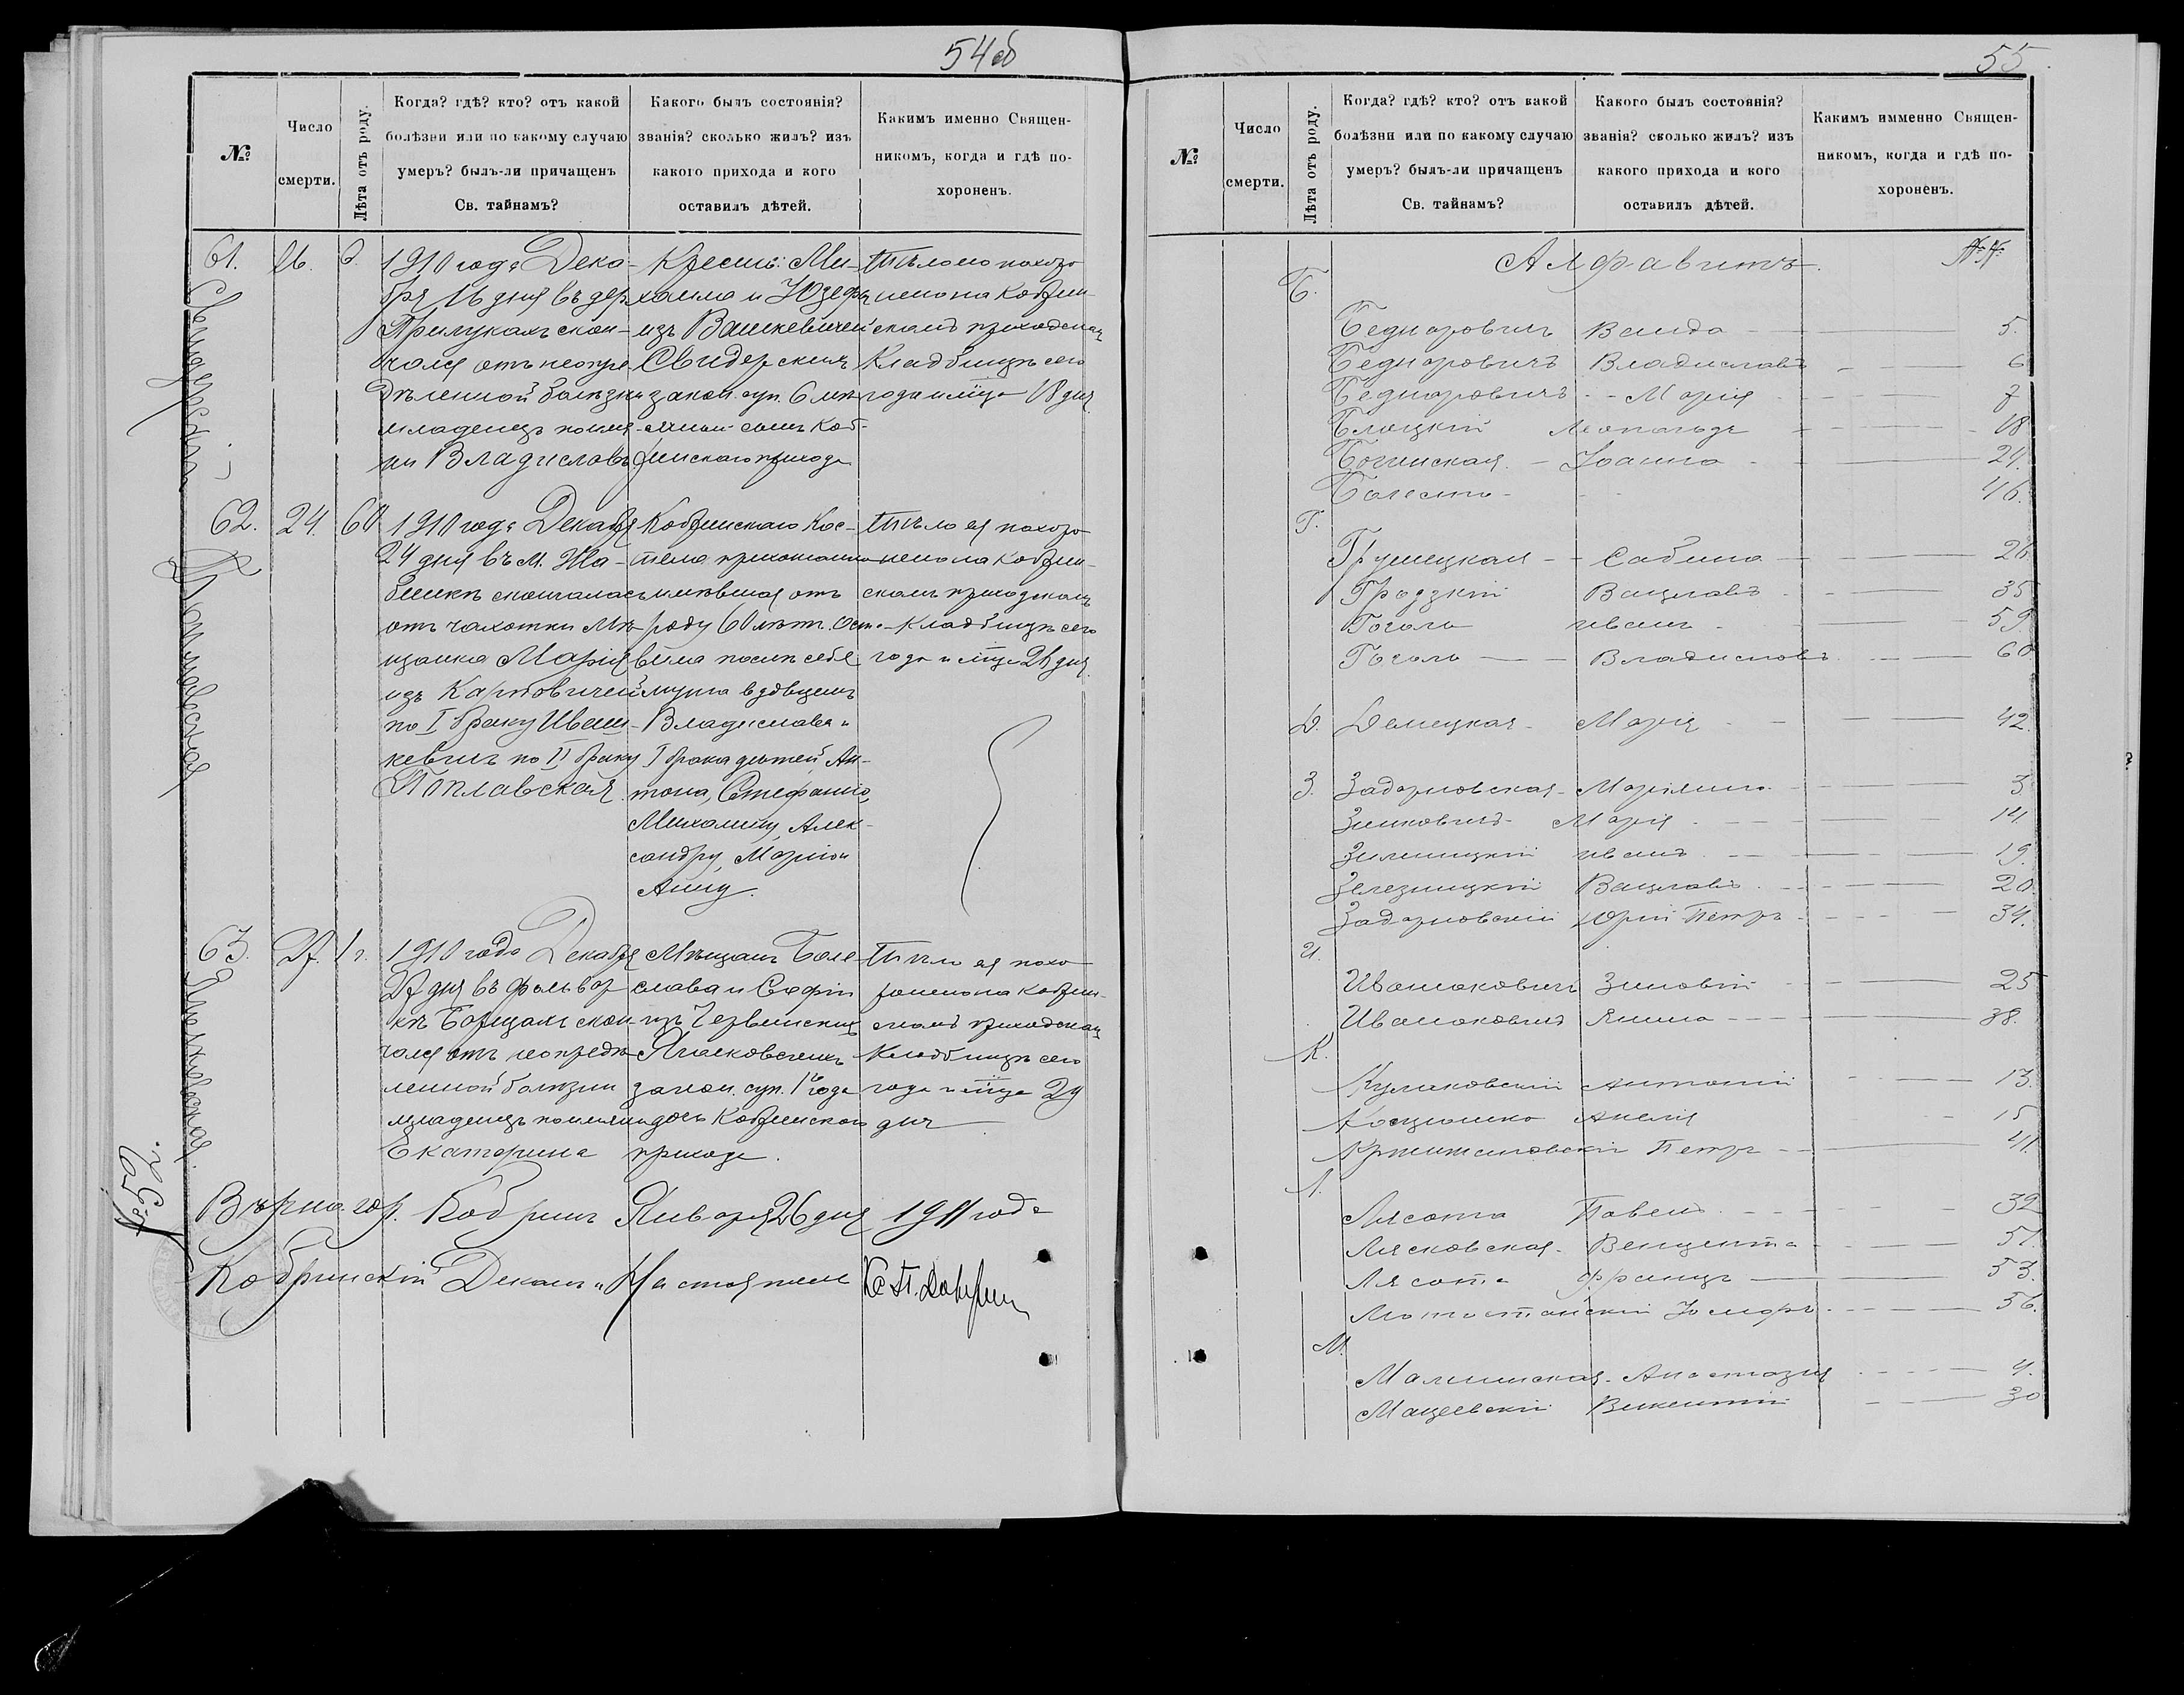 54об
№
Число смерти.
Лѣта отъ роду.
Когда? гдѣ? кто? отъ какой
болѣзни или по какому случаю
умеръ? былъ-ли причащенъ
Св. тайнамъ?
Какого былъ состоянія?
званія? сколько жилъ? изъ
какого прихода и кого
оставилъ дѣтей.
Какимъ именно Священ-
никомъ, когда и гдѣ по-
хороненъ.
61. 16. 6.
Свидерскій
1910 года Дека-
бря 16 дня въ дер.
Прилукахъ скон-
чался отъ неопре-
дѣленной болѣзни
младенецъ по име-
ни Владиславъ
Крестьянъ: Ми-
хаила и Юзефы
изъ Вашкевичей
Свидерскихъ
закон. суп. 6 лѣт-
сынъ Коб-
ринскаго прихода
Тѣло его похоро
нено на Кобрин-
скомъ приходскомъ
Кладбищѣ сего
года и мѣца 18 дня
62. 24. 60
Поплавская
1910 года Декабря
24 дня въ М. Жа-
бинкѣ скончалась
отъ чахотки Мѣ-
щанка Марія
изъ Карповичей
по I браку Иваш-
кевичъ по II браку
Поплавская.
Кобринскаго Кос-
тела прихожанка
имѣвшая отъ
роду 60 лѣтъ. Оста-
вила послѣ себя
мужа вдовцемъ
Владислава и
I брака дѣтей, Ан-
тона, Стефанію,
Михалину, Алек-
сандру, Марію и
Анну.
Тѣло ея похоро
нено на Кобрин-
скомъ приходскомъ
Кладбищѣ сего
года и мѣца 26 дня.
63. 27. 1 г.
Янковская.
1910 года Декабря
27 дня въ фольвар
кѣ Борщахъ скон-
чался отъ неопредѣ-
ленной болѣзни
младенецъ по имени
Екатерина
Мѣщанъ Боле-
слава и Софіи
изъ Червинскихъ
закон. суп. 1 года
дочь Кобринскаго
прихода.
Тѣло ея похо
ронено на Кобрин-
скомъ приходскомъ
Кладбищѣ сего
года и мѣца 29
дня
№52.
Вѣрно. гор. Кобринъ Января 26 дня 1911 года
Кобринскій Деканъ и Настоятель
55
№
Число смерти.
Лѣта отъ роду.
Когда? гдѣ? кто? отъ какой
болѣзни или по какому случаю
умеръ? былъ-ли причащенъ
Св. тайнамъ?
Какого былъ состоянія?
званія? сколько жилъ? изъ
какого прихода и кого
оставилъ дѣтей.
Какимъ имменно Священ-
никомъ, когда и гдѣ по-
хороненъ.
Алфавитъ. №№
Б.
Беднаровичъ Ванда 5.
Беднаровичъ Владиславъ 6
Беднаровичъ Марія 7
Блоцкій Леопольдъ 18
Богинская Іоанна 24.
46.
Г.
Грушецкая Сабина 26.
Гродзкій Вацлавъ 35
Гоголь Иванъ 59
Гоголь Владиславъ 60
Д. Демецкая Марія 42
З. Задарновская Маріянна 3
Зинковичъ Марія 14
Зилницкій Иванъ 19.
Зелезницкій Вацлавъ 20.
Задарновскій Юрій Петръ 34.
И.
Иванаковичъ Зиновій 25
Иванаковичъ Янина 38.
К.
Кулаковскій Антоній 13.
Косцюшко Анелія 15
Кржижановскій Петръ 41
Л.
Лясота Павелъ 32
Лясковская Венцента 51.
Лясота Францъ 53.
56.
М.
Малишская Анастазія 4.
Мацѣевскій Викентій 30